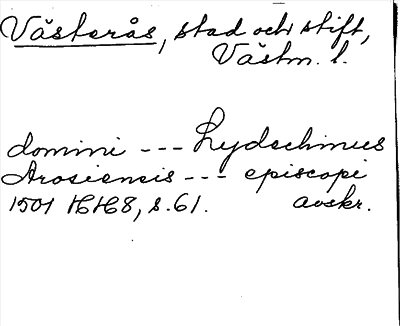 Västerås, stad och stift,
Västm. l.
domini --- Lydechinus
Arosiensis --- episcopi
1501 HH8, s. 61. avskr.